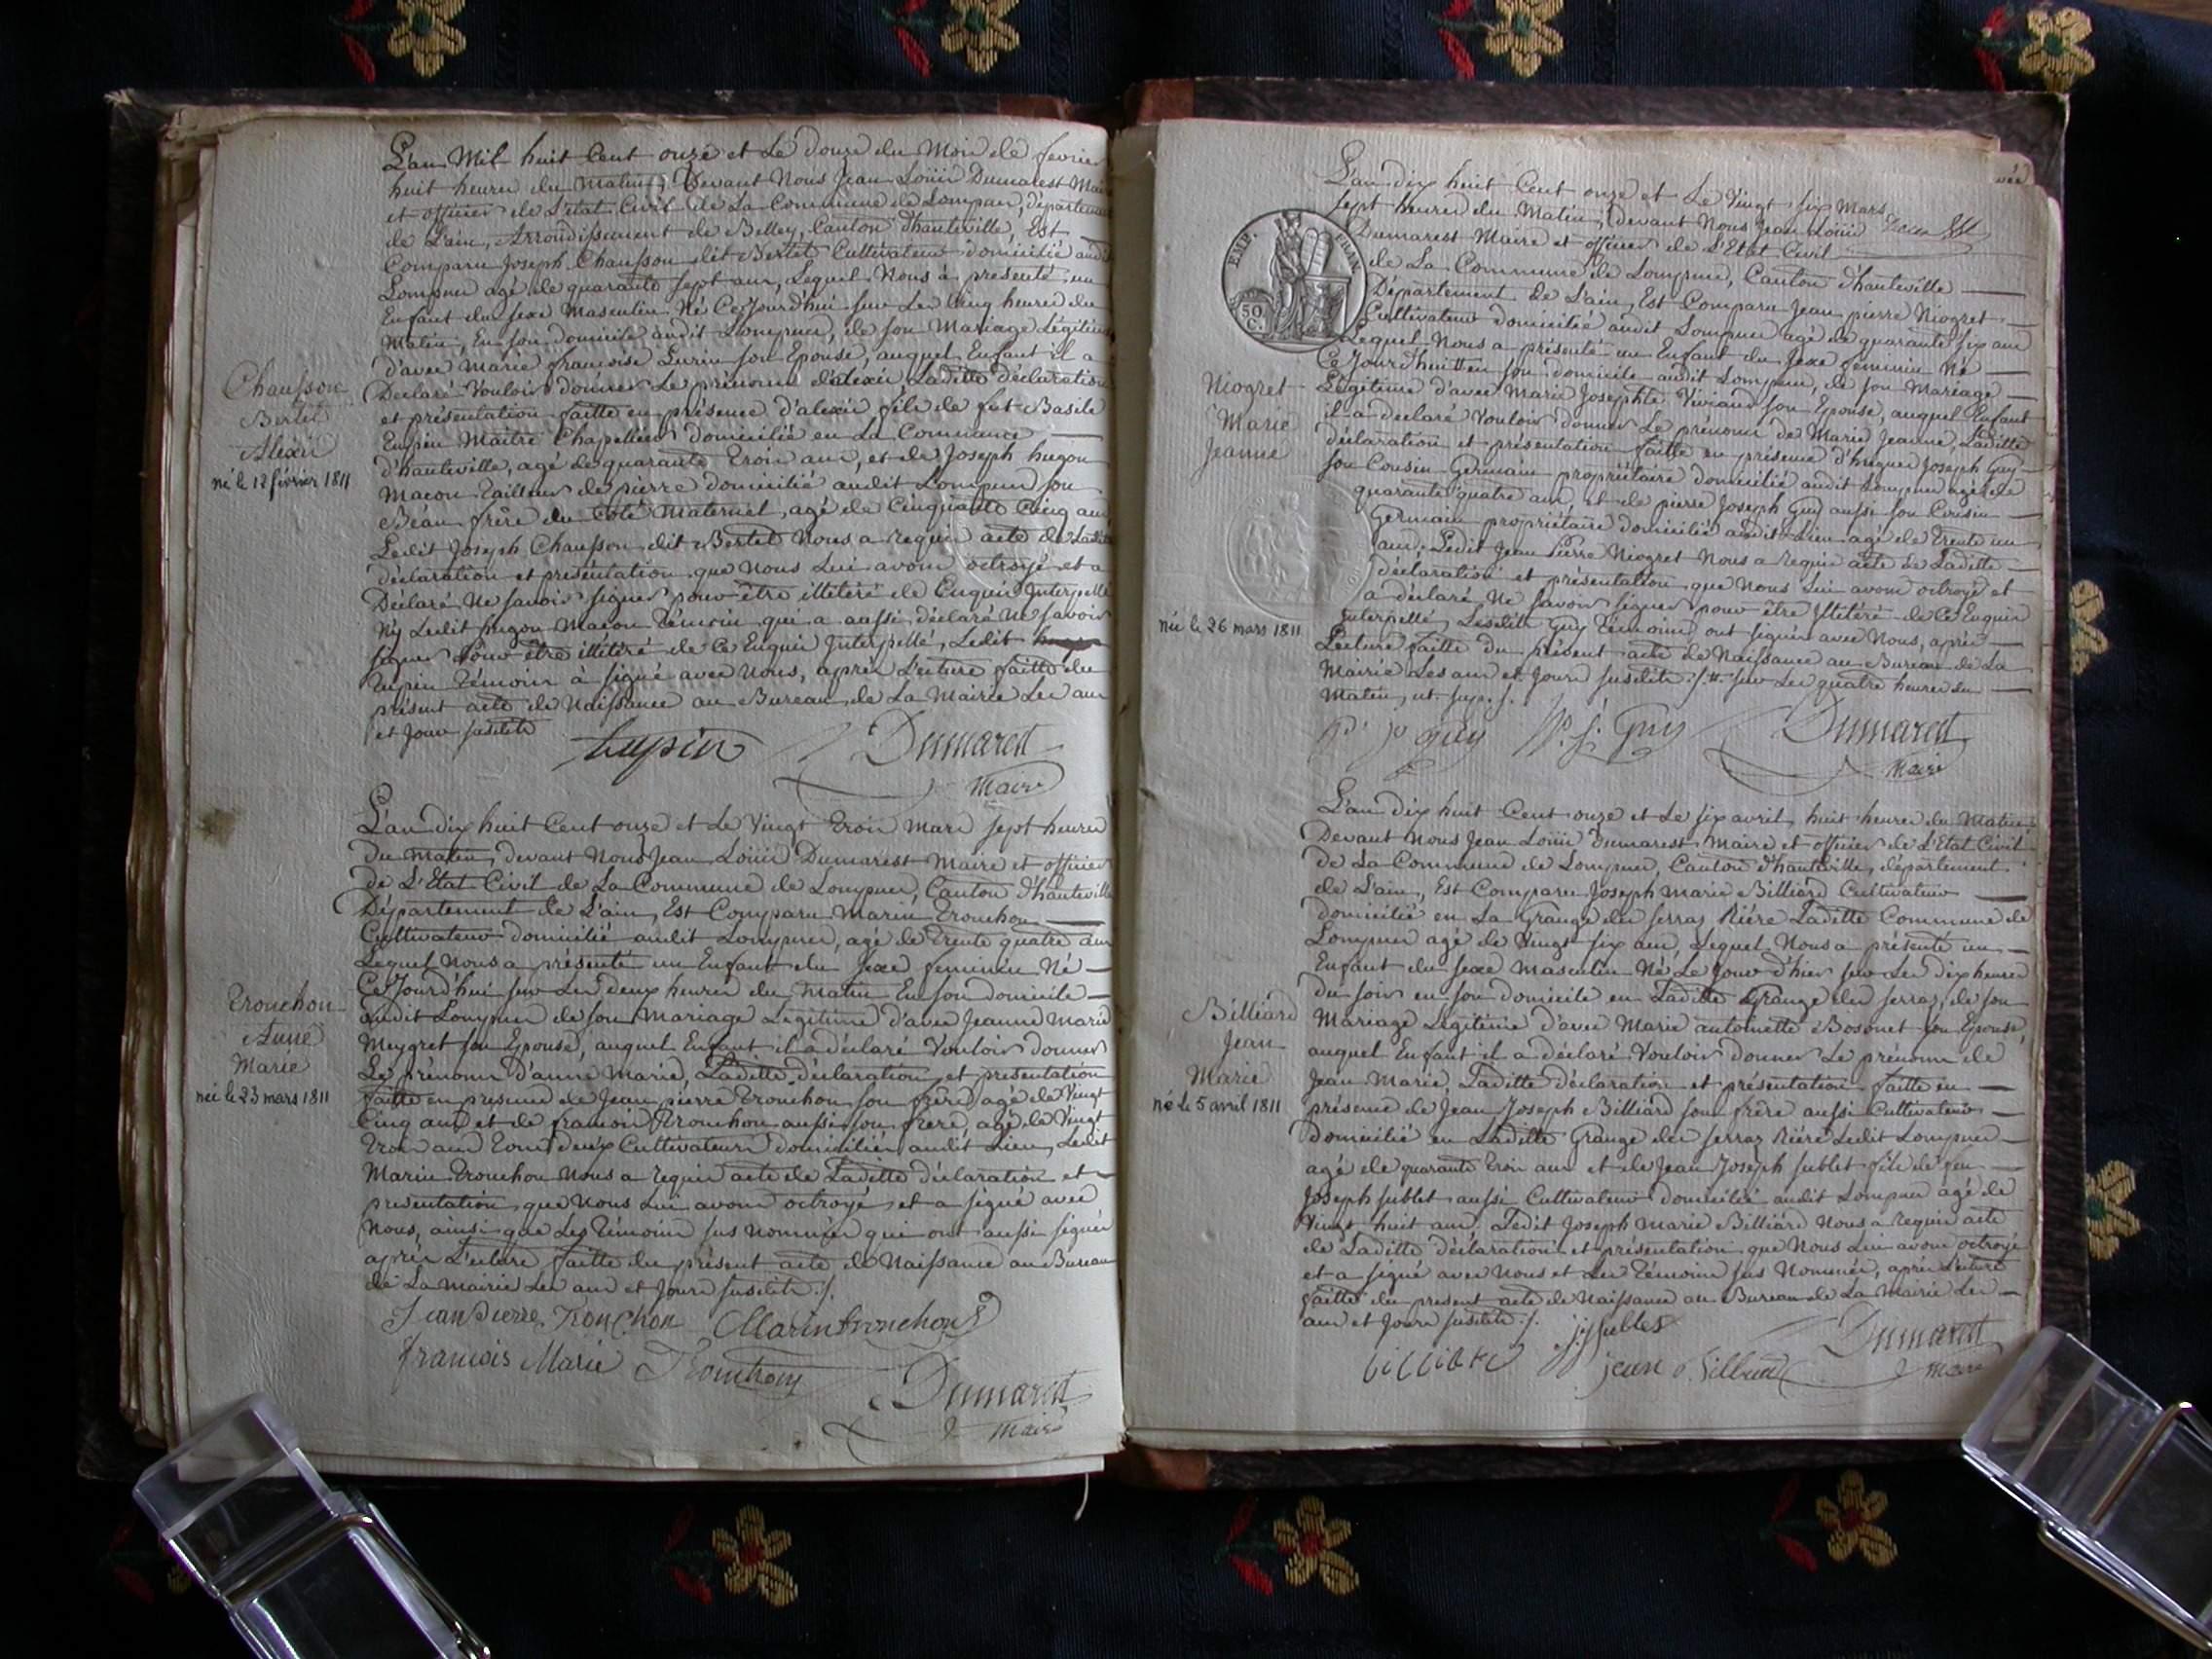 L'an Mil huit Cent onze et Le douze du Mois de fevrier
huit heures du Matin, Devant Nous Jean Loüis Dumarest Maire
et officier de L'état Civil de La Commune de Lompnas, département
de L'ain, Arrondissement de Belley, Canton d'hauteville, Est
Comparu Joseph Chausson dit Bertet Cultivateur domicilié audit
Lompnes agé de quarante sept ans, Lequel Nous a presenté un
Enfant du sexe Masculin Né Cejourd'hui sur Les Cinq heures du
Matin, En son domicile audit Lompnes, de son Mariage Légitime
d'avec Marie françoise son Epouse, auquel Enfant il a
Declaré Vouloir donner Le prénom d'alexis Laditte déclaration
et présentation faitte en présence d'alexis fils de fut Basile
Maitre Chapellier domicilié en La Commune
d'hauteville, agé de quarante trois ans, et de Joseph hugon
Macon tailleur de pierre domicilié audit Lompnes son
Beau frère du Coté Maternel, agé de Cinquante Cinq ans
Ledit Joseph Chausson dit Bertet Nous a requis acte de Laditte
déclaration et présentation que Nous Lui avons octroyé et a
Déclaré Ne savoir signer pour être illétéré de Enquis Interpellé
Ny Ledit hugon Macon témoin qui a aussi déclaré Ne savoir
signer pour être illétéré de Ce Enquis Interpellé, Ledit
tupin témoin à signé avec Nous, après Lecture faitte du
présent acte de Naissance au Bureau de La Mairie Les ans
et Jour susdits
tupin Dumarest
Maire
Chausson
Bertet
Alexis
né le 12 février 1811
L'an dix huit Cent onze et Le Vingt trois Mars sept heures
Du Matin, devant Nous Jean Loüis Dumarest Maire et officier
de L'Etat Civil de La Commune de Lompnes, Canton d'hauteville
Département de L'ain, Est Comparu Marin Tronchon
Cultivateur domicilié audit Lompnes, agé de trente quatre ans
Lequel Nous a présenté un Enfant du sexe feminin Né
CeJourd'hui sur Les deux heures du Matin En son domicile
audit Lompnes de son Mariage Légitime d'avec Jeanne Marie
Meygret son Epouse, auquel Enfant il a déclaré Vouloir donner
Le prénom d'anne Marie, Laditte déclaration et présentation
faitte en presence de Jean pierre Tronchon son frère agé de Vingt
Cinq ans et de françois Tronchon aussi son frère, agé de Vingt
trois ans tous deux Cultivateurs domiciliés audit Lieu, Ledit
Marin Tronchon Nous a requis acte de Laditte déclaration et
présentation que Nous Lui avons octroyé et a signé avec
Nous, ainsi que Les témoins sus nommés qui ont aussi signés
après Lecture faitte du présent acte de Naissance au Bureau
de La Mairie Les ans et Jours susdits ./.
Jean Pierre Tronchon Marin tronchon
françois Marie Tronchon
Dumarest
Maire
Tronchon
Anne
Marie
née le 23 mars 1811
L'an dix huit Cent onze et Le Vingt six Mars
sept heures du Matin, devant Nous Jean Loüis
Dumarest Maire et officier de L'Etat Civil
de La Commune de Lompnes, Canton d'hauteville
Département de L'ain, Est Comparu Jean pierre Niogret
Cultivateur domicilié audit Lompnes agé de quarante six ans
Lequel Nous a présenté un Enfant du sexe feminin Né
CeJourd'hui # en son domicile audit Lompnes, de son Mariage
Légitime d'avec Marie Josephte Viviand son Epouse, auquel Enfant
il a déclaré Vouloir donner Le prénom de Marie Jeanne, Laditte
déclaration et présentation faitte en présence d'hugues Joseph Guy
son Cousin Germain propriétaire domicilié audit Lompnes agé de
quarante quatre ans, et de pierre Joseph Guy aussi son Cousin
Germain propriétaire domicilié audit Lieu agé de trente un
ans. Ledit Jean Pierre Niogret Nous a requis acte de Laditte
déclaration et présentation que Nous Lui avons octroyé et
a déclaré Ne savoir signer pour être Illétéré de Ce Enquis
Interpellé, Lesdits Guy témoins ont signés avec Nous, après
Lecture faitte du présent acte de Naissance au Bureau de La
Mairie Les ans et Jours susdits ./. # sur Les quatre heures du
Matin, ut sup. ./.
P. J. Guy h. J. Guy Dumarest
Maire
EMP. FRAN.
50
C.
Niogret
Marie
Jeanne
née le 26 mars 1811
L'an dix huit Cent onze et Le six avril, huit heures du Matin
Devant Nous Jean Loüis Dumarest Maire et officier de L'Etat Civil
de La Commune de Lompnes, Canton d'hauteville, département
de L'ain, Est Comparu Joseph Marie Billiard Cultivateur
domicilié en La Grange des serraz Rière Laditte Commune de
Lompnes agé de Vingt six ans, Lequel Nous a présenté un
Enfant du sexe Masculin Né Le Jour d'hier sur Les dix heures
du soir en son domicile en Laditte Grange des serraz, de son
Mariage Légitime d'avec Marie antoinette Bosonet son Epouse,
auquel Enfant il a déclaré Vouloir donner Le prénom de
Jean Marie, Laditte déclaration et présentation faitte en
présence de Jean Joseph Billiard son frère aussi Cultivateur
domicilié en Laditte Grange des serraz Rière Ledit Lompnes
agé de quarante trois ans et de Jean Joseph sublet fils de feu
Joseph sublet aussi Cultivateur domicilié audit Lompnes agé de
Vingt huit ans. Ledit Joseph Marie Billiard Nous a requis acte
de Laditte déclaration et présentation que Nous Lui avons octroyé
et a signé avec Nous et Les témoins sus Nommés, après Lecture
faitte du présent acte de Naissance au Bureau de La Mairie Les
ans et Jours susdits ./. JJ sublet Dumarest
billiard jean J. billiard Maire
Billiard
Jean
Marie
né le 5 avril 1811